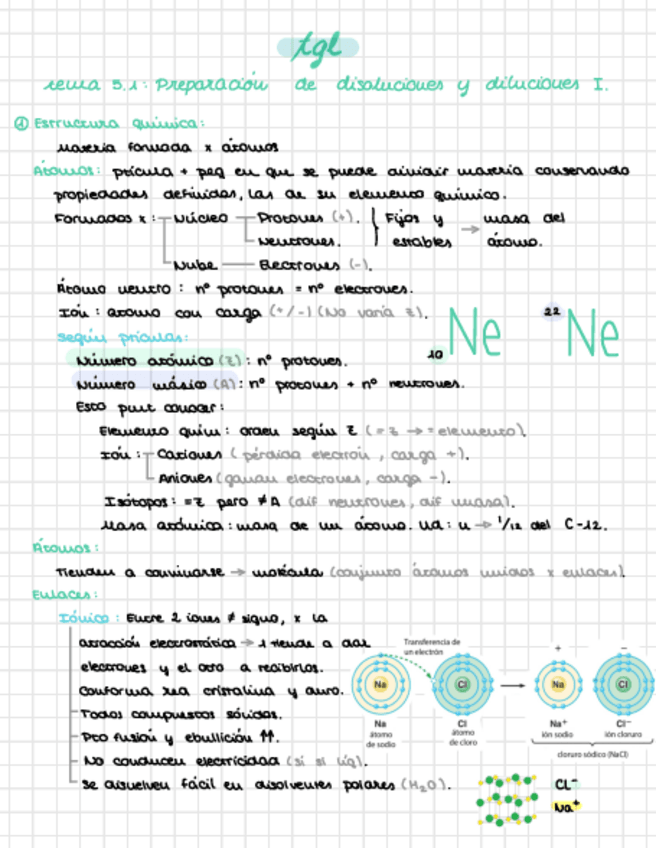 tgl
tema 5.1: Preparación de disoluciones y diluciones I.
① Estructura química:
Materia formada x átomos
Átomos: pticula + peq en que se puede dividir materia conservando
propiedades definidas, las de su elemento químico.
Formados x: Núcleo Protones (+). Fijos y → masa del
Neutrones. estables átomo.
Nube Electrones (-).
Átomo neutro: nº protones = nº electrones.
Ión: átomo con carga (+/-) (No varía z).
10 Ne 22 Ne
según prículas:
Número atómico (Z): nº protones.
Número másico (A): nº protones + nº neutrones.
Esto pmt conocer:
Elemento quím: orden según Z (= z → = elemento).
Ión: Cationes (pérdida electrón, carga +).
Aniones (ganan electrones, carga -).
Isótopos: =Z pero ≠A (dif neutrones, dif masa).
Masa atómica: masa de un átomo. Ud: u → 1/12 del C-12.
Átomos:
Tienden a convinarse → molécula (conjunto átomos unidos x enlaces).
Enlaces:
Iónico: Entre 2 iones ≠ signo, x la
atracción electrostática → 1 tiende a dar
electrones y el otro a recibirlos.
Conforma red cristalina y duro.
Todos compuestos sólidos.
Pto fusión y ebullición ⇈.
No conducen electricidad (si si líq).
Se disuelven fácil en disolventes polares (H₂O).
Transferencia de
un electrón
+ −
Na Cl → Na Cl
Na Cl Na⁺ Cl⁻
átomo de sodio átomo de cloro ión sodio ión cloruro
cloruro sódico (NaCl)
CL⁻
Na⁺